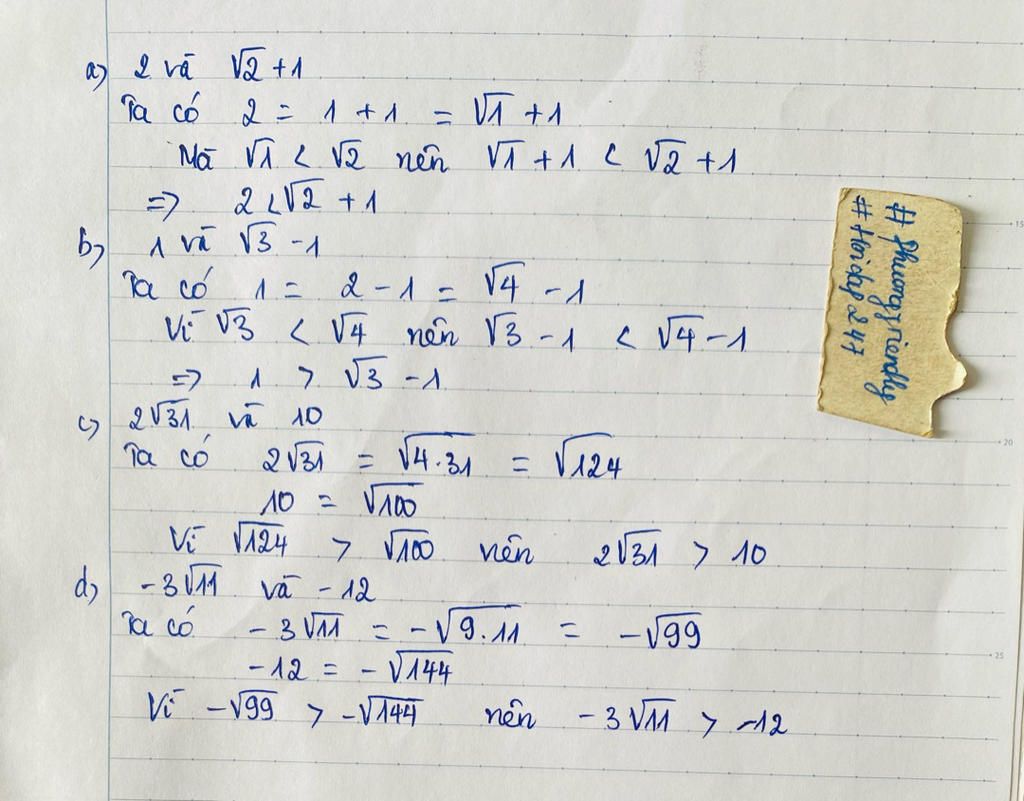 a) 2 và √2 + 1
Ta có 2 = 1 + 1 = √1 + 1
Mà √1 < √2 nên √1 + 1 < √2 + 1
=> 2 < √2 + 1
b) 1 và √3 - 1
Ta có 1 = 2 - 1 = √4 - 1
Vì √3 < √4 nên √3 - 1 < √4 - 1
=> 1 > √3 - 1
c) 2√31 và 10
Ta có 2√31 = √4.31 = √124
10 = √100
Vì √124 > √100 nên 2√31 > 10
d) -3√11 và -12
Ta có -3√11 = -√9.11 = -√99
-12 = -√144
Vì -√99 > -√144 nên -3√11 > -12
# Hoidap247
15
20
25